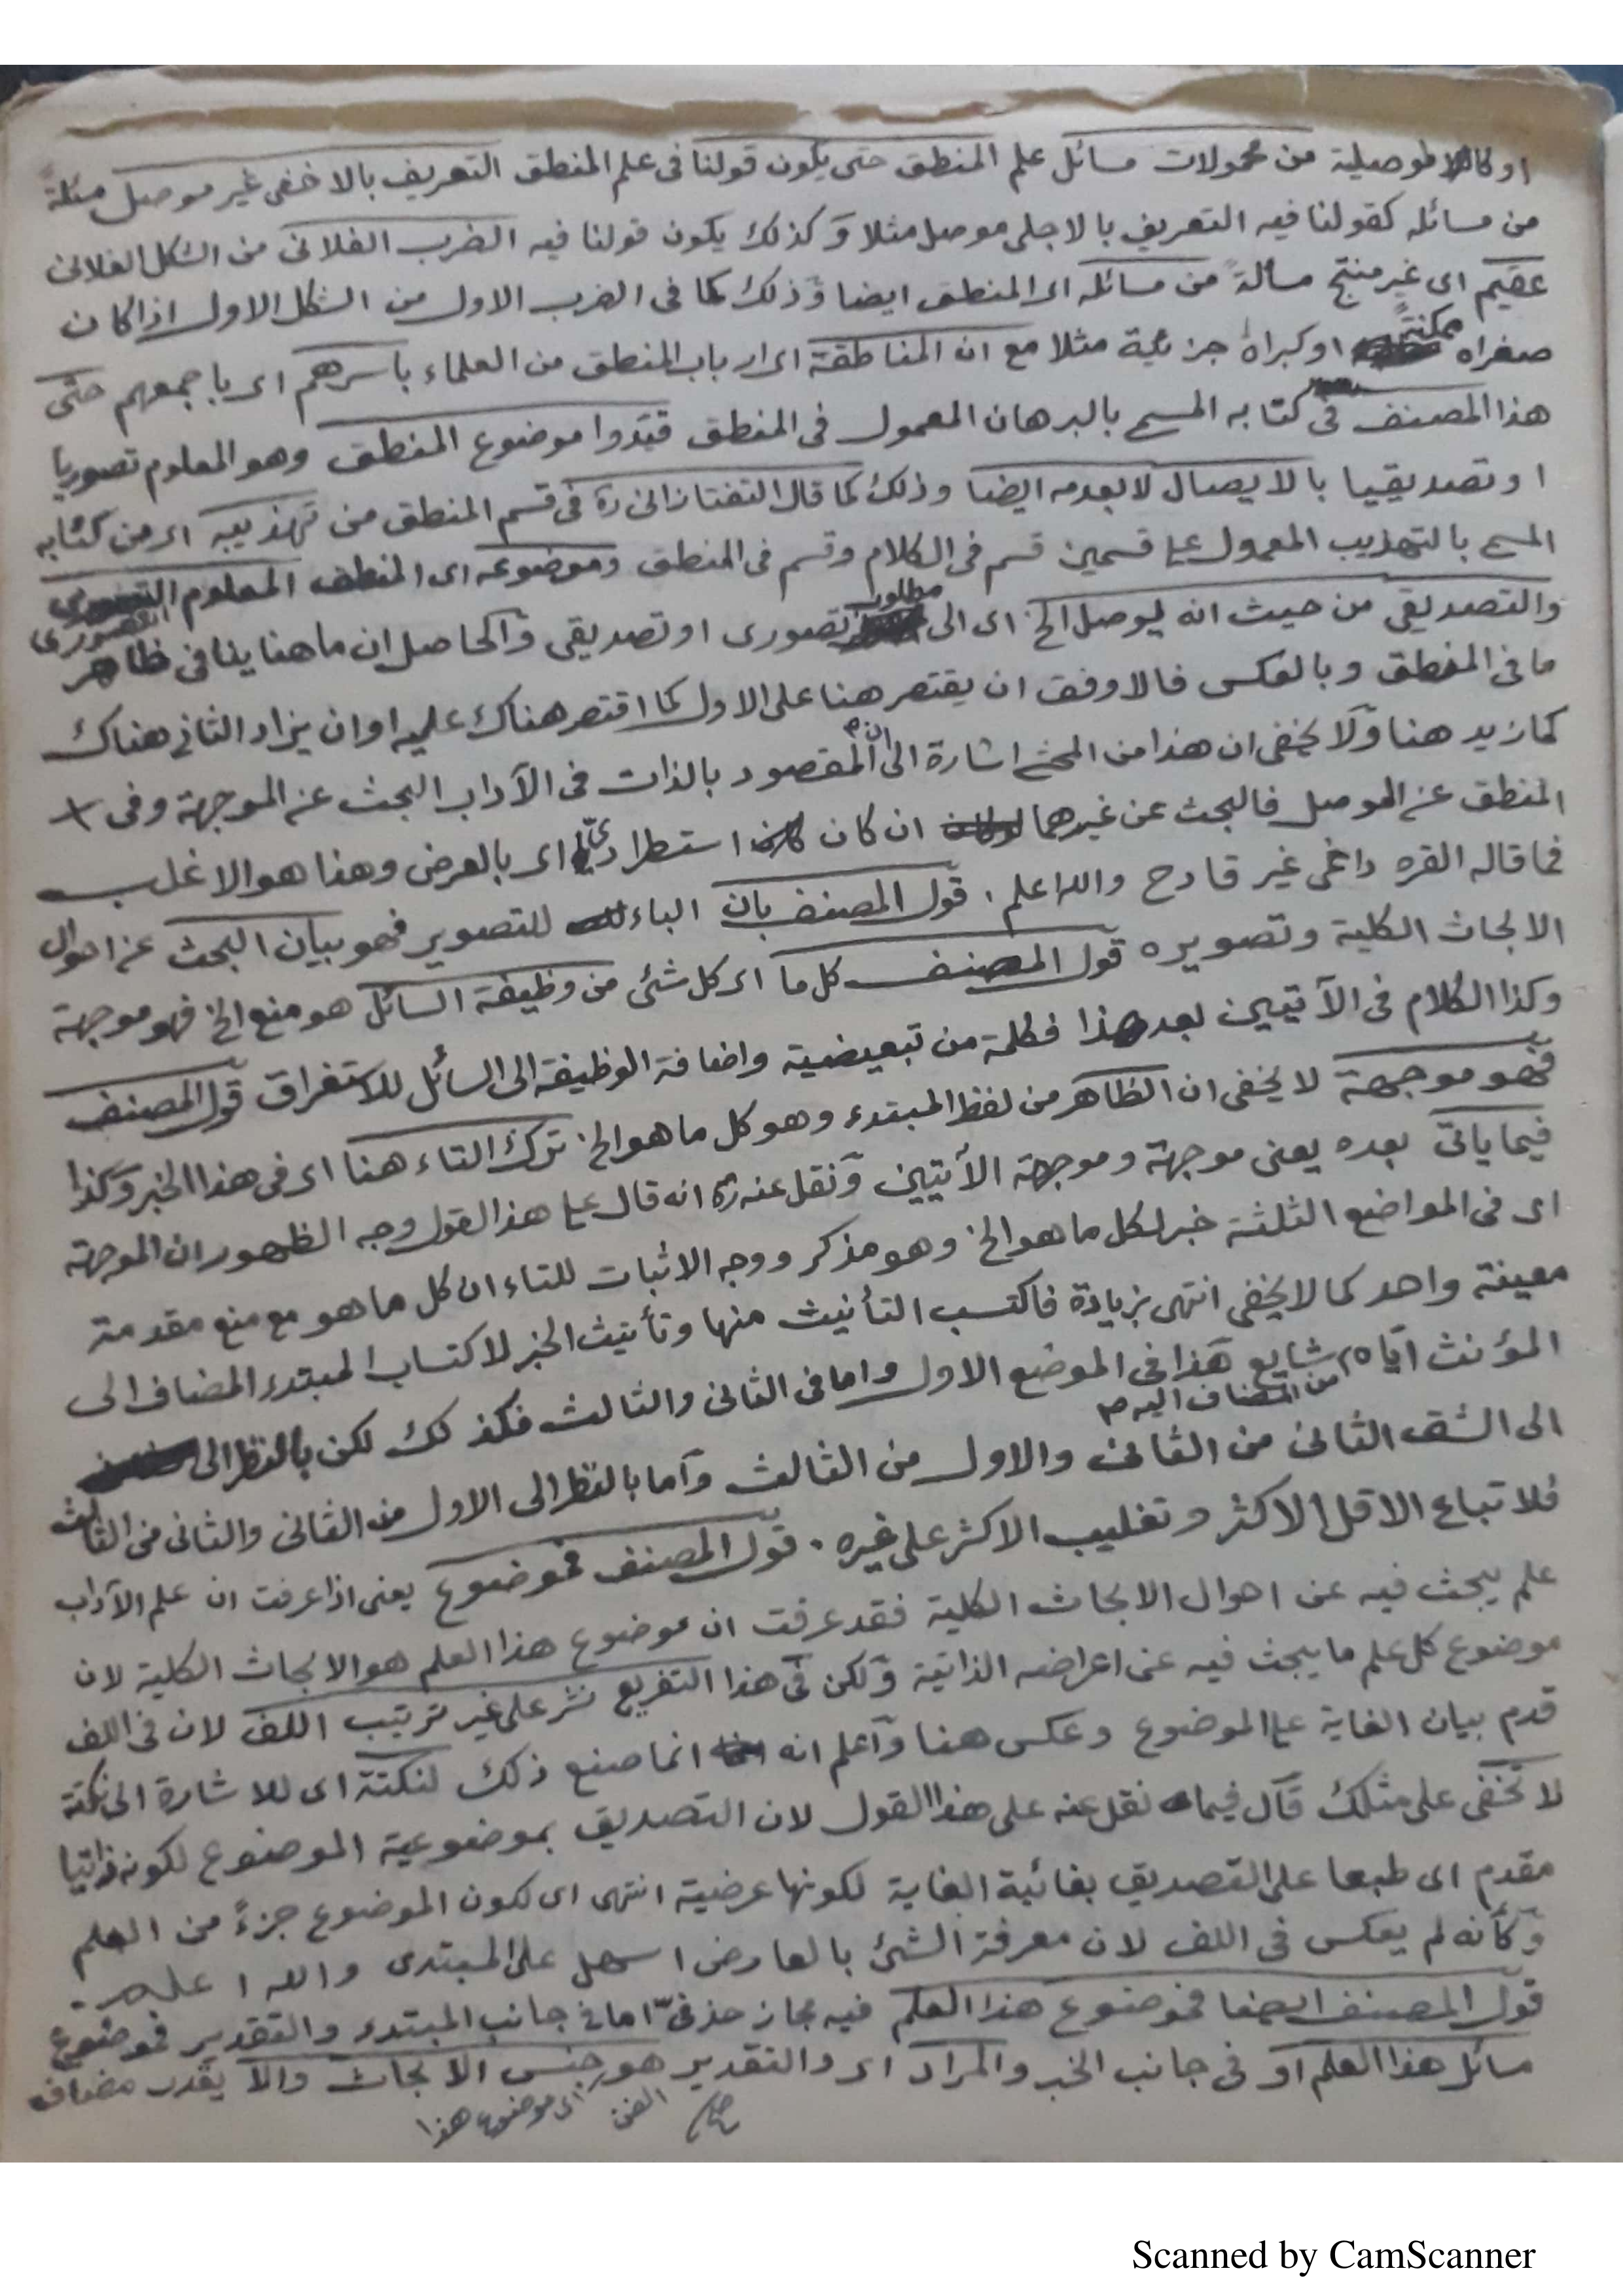 او كاللاموصيلية من محمولات مسائل علم المنطق حتى يكون قولنا فى علم المنطق التعريف بالاخفى غير موصل مسئلةً
من مسائله كقولنا فيه التعريف بالاجلى موصل مثلا وكذلك يكون قولنا فيه الضرب الفلانى من الشكل الفلانى
عقيم اى غير منتج مسألةً من مسائله اى المنطق ايضا وذلك كما فى الضرب الاول من الشكل الاول اذا كان
صغراه ممكنةً او كبراهُ جزئية مثلا مع ان المناطقة اى ارباب المنطق من العلماء باسرهم اى باجمعهم حتى
هذا المصنف فى كتابه المسمى بالبرهان المعمول فى المنطق قيّدوا موضوع المنطق وهو المعلوم تصوريا
او تصديقيا بالايصال لا بعدمه ايضا وذلك كما قال التفتازانى ره فى قسم المنطق من تهذيبه اى من كتابه
المسمى بالتهذيب المعمول على قسمين قسم فى الكلام وقسم فى المنطق وموضوعه اى المنطق المعلوم التصورى
والتصديقى من حيث انه يوصل الخ اى الى مطلوب تصورى او تصديقى والحاصل ان ما هنا ينافى ظاهر
ما فى المنطق وبالعكس فالاوفق ان يقتصر هنا على الاول كما اقتصر هناك عليه او ان يزاد الثانى هناك
كما زيد هنا ولا يخفى ان هذا من المحشى اشارة الى ان المقصود بالذات فى الآداب البحث عن الموجهة وفى
المنطق عن الموصل فالبحث عن غيرهما ان كان استطرادىّ اى بالعرض وهذا هو الاغلب
فما قاله القره داغى غير قادح والله اعلم . قول المصنف بان الباء للتصوير فهو بيان البحث عن احوال
الابحاث الكلية وتصويره قول المصنف كل ما اى كل شئ من وظيفة السائل هو منع الخ فهو موجهة
وكذا الكلام فى الآتيين بعد هذا فكلمة من تبعيضية واضافة الوظيفة الى السائل للاستغراق قول المصنف
فهو موجهة لا يخفى ان الظاهر من لفظ المبتدء وهو كل ما هو الخ ترك التاء هنا اى فى هذا الخبر وكذا
فيما ياتى بعده يعنى موجهة وموجهة الآتيين ونقل عنه ره انه قال على هذا القول وجه الظهور ان الموجهة
اى فى المواضع الثلثة خبر لكل ما هو الخ وهو مذكر ووجه الاثبات للتاء ان كل ما هو مع منع مقدمة
معينة واحد كما لا يخفى انتهى بزيادة فاكتسب التأنيث منها وتأنيث الخبر لاكتساب المبتدء المضاف الى
المؤنث اياه من المضاف اليه شايع هذا فى الموضع الاول واما فى الثانى والثالث فكذلك لكن بالنظر الى
الى الشق الثانى من الثانى والاول من الثالث واما بالنظر الى الاول من الثانى والثانى من الثالث
فلاتباع الاقل الاكثر وتغليب الاكثر على غيره . قول المصنف فموضوع يعنى اذا عرفت ان علم الآداب
علم يبحث فيه عن احوال الابحاث الكلية فقد عرفت ان موضوع هذا العلم هو الابحاث الكلية لان
موضوع كل علم ما يبحث فيه عن اعراضه الذاتية ولكن فى هذا التفريع نشر على غير ترتيب اللف لان فى اللف
قدم بيان الغاية على الموضوع وعكس هنا واعلم انه انما صنع ذلك لنكتة اى للاشارة الى نكتة
لا تخفى على مثلك قال فيما نقل عنه على هذا القول لان التصديق بموضوعية الموضوع لكونه ذاتيا
مقدم اى طبعا على التصديق بغائية الغاية لكونها عرضية انتهى اى لكون الموضوع جزءً من العلم
وكأنه لم يعكس فى اللف لان معرفة الشئ بالعارض اسهل على المبتدى والله اعلم .
قول المصنف ايضا فموضوع هذا العلم فيه مجاز حذفىّ اما فى جانب المبتدء والتقدير فموضوع
مسائل هذا العلم او فى جانب الخبر والمراد اى والتقدير هو جنس الابحاث والا يقدر مضاف
اى موضوع هذا الفن
Scanned by CamScanner